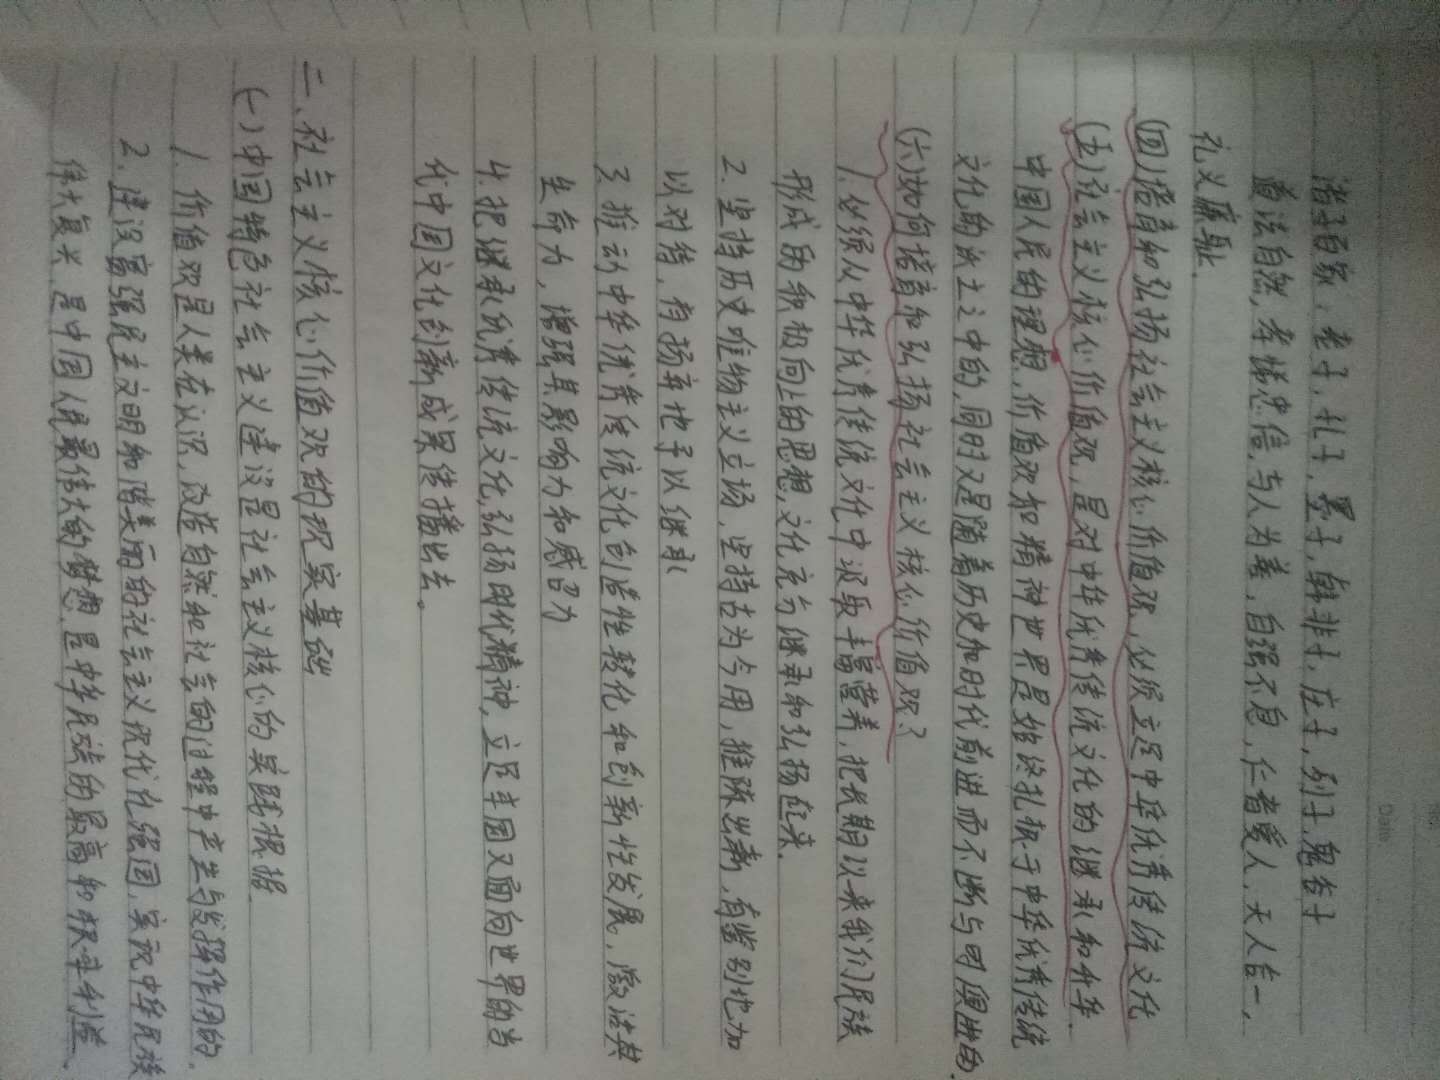 诸子百家，老子，孔子，墨子，韩非子，庄子，列子，鬼谷子
道法自然，孝悌忠信，与人为善，自强不息，仁者爱人，天人合一，
礼义廉耻.
(四)培育和弘扬社会主义核心价值观，必须立足中华优秀传统文化
(五)社会主义核心价值观，是对中华优秀传统文化的继承和升华.
中国人民的理想，价值观和精神世界是始终扎根于中华优秀传统
文化的沃土之中的，同时又是随着历史和时代前进而不断与时俱进的.
(六)如何培育和弘扬社会主义核心价值观？
1.必须从中华优秀传统文化中汲取丰富营养，把长期以来我们民族
形成的积极向上的思想，文化充分继承和弘扬起来.
2.坚持历史唯物主义立场，坚持古为今用，推陈出新，有鉴别地加
以对待，有扬弃地予以继承
3.推动中华优秀传统文化创造性转化和创新性发展，激活其
生命力，增强其影响力和感召力
4.把继承优秀传统文化，弘扬时代精神，立足本国又面向世界的当
代中国文化创新成果传播出去。
二.社会主义核心价值观的现实基础
(一)中国特色社会主义建设是社会主义核心的实践根据.
1.价值观是人类在认识，改造自然和社会的过程中产生与发挥作用的.
2.建设富强民主文明和谐美丽的社会主义现代化强国，实现中华民族
伟大复兴，是中国人民最伟大的梦想，是中华民族的最高和根本利益.
Date